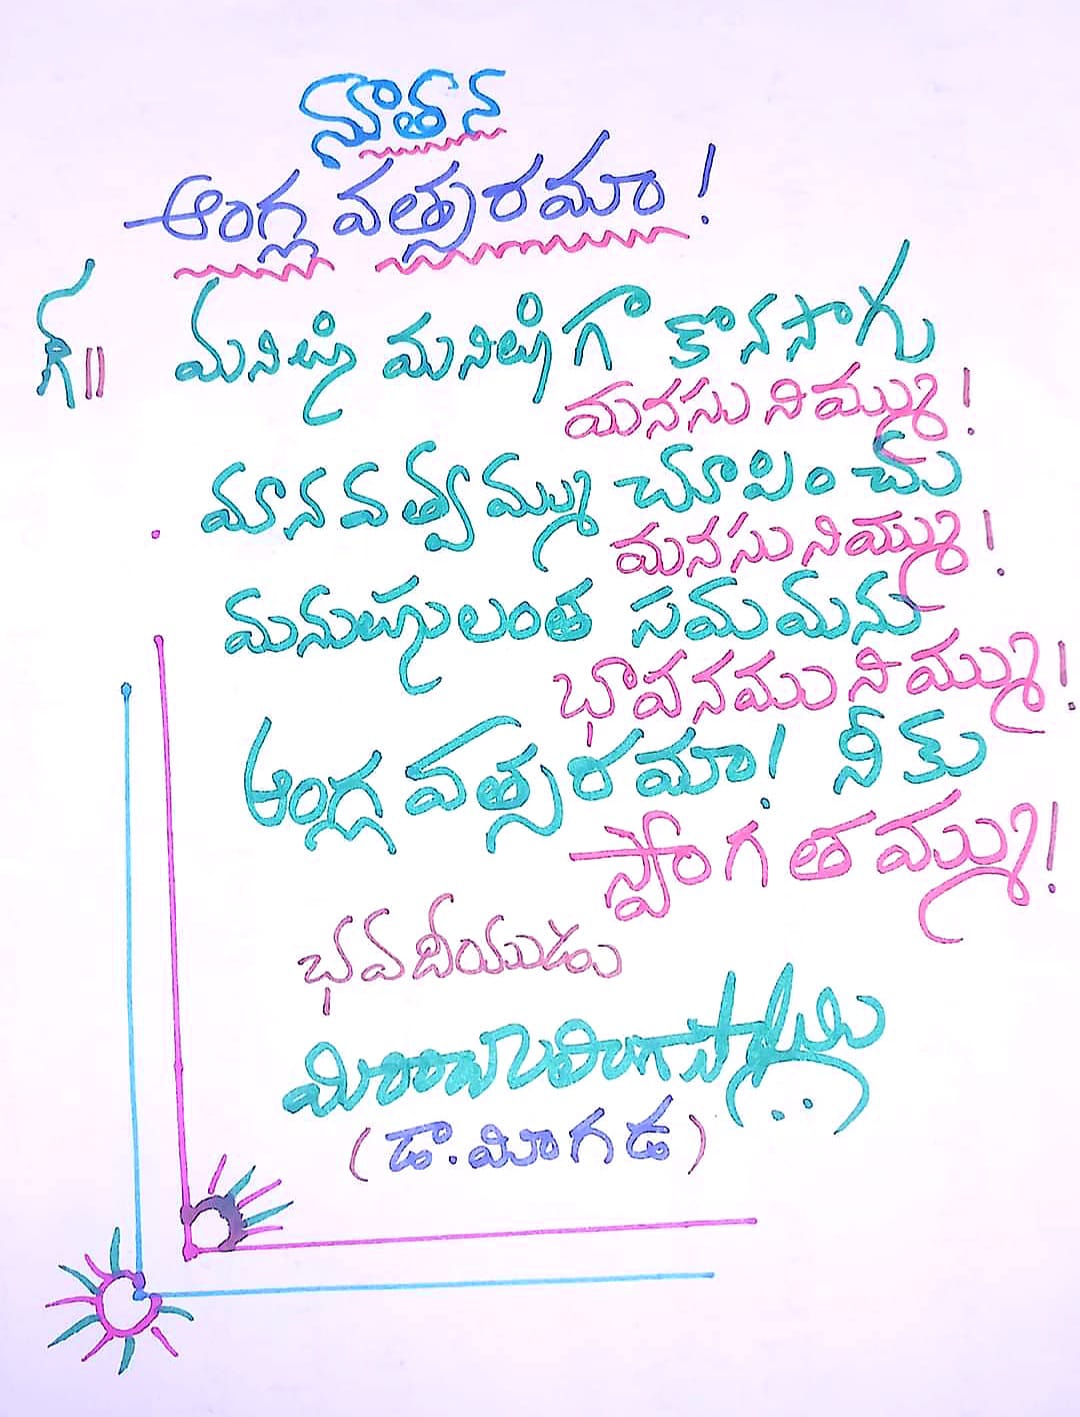 నూతన
ఆంగ్ల వత్సరమా!
గీ॥ మనిషి మనిషిగా కొనసాగు
మనసు నిమ్ము!
మానవత్వమ్ము చూపించు
మనసు నిమ్ము!
మనుష్యులంత సమమను
భావనము నిమ్ము!
ఆంగ్ల వత్సరమా! నీకు
స్వాగతమ్ము!
భవదీయుడు
(డా. మీగడ)